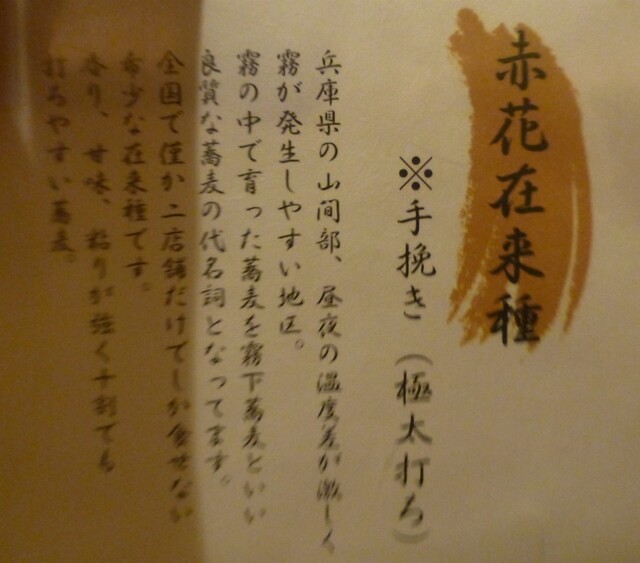 赤花在来種
※手挽き（極太打ち）
兵庫県の山間部、昼夜の温度差が激しく
霧が発生しやすい地区。
霧の中で育った蕎麦を霧下蕎麦といい
良質な蕎麦の代名詞となってます。
全国で僅か二店舗だけでしか食せない
希少な在来種です。
香り、甘味、粘りが強く十割でも
打ちやすい蕎麦。